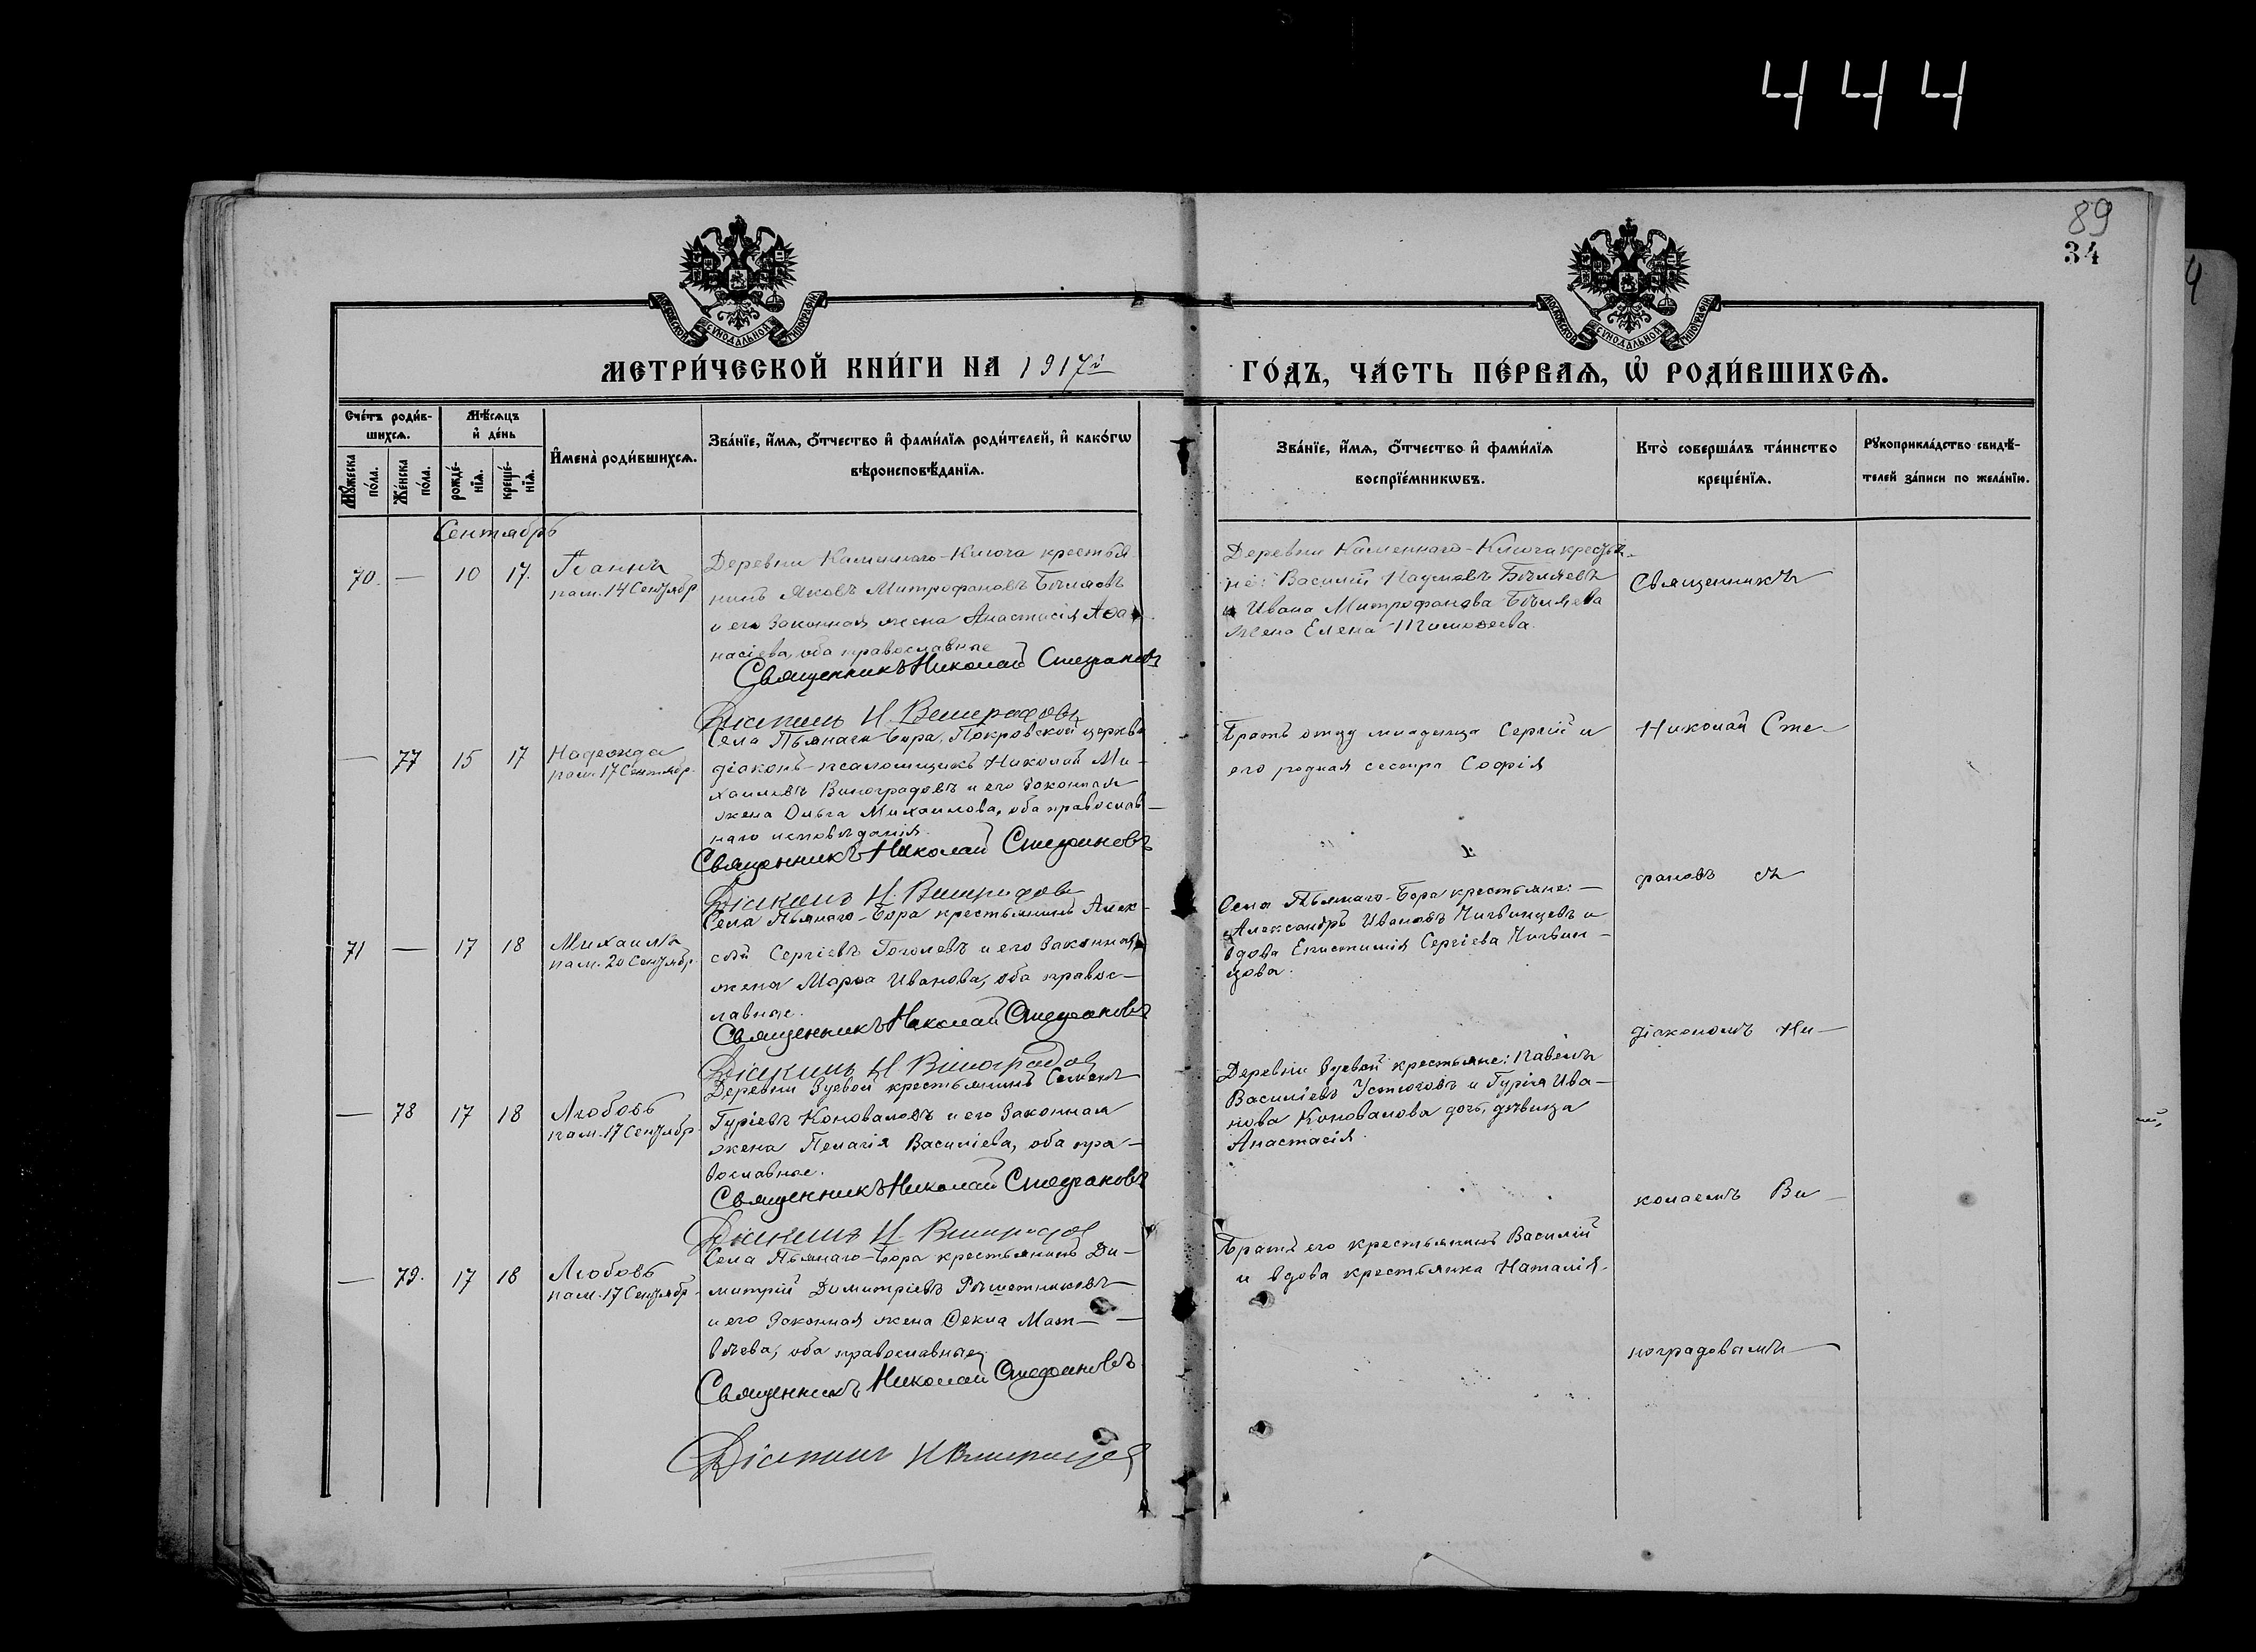 444
89
34
МОСКОВСКОЙ СѴНОДАЛЬНОЙ ТИПОГРАФІИ
МОСКОВСКОЙ СѴНОДАЛЬНОЙ ТИПОГРАФІИ
МЕТРИ́ЧЕСКОЙ КНИ́ГИ НА 1917й
ГО́ДЪ, ЧА́СТЬ ПЕ́РВАѦ, Ѡ҆ РОДИ́ВШИХСѦ.
Сче́тъ роди́в-
шихсѧ.
Мꙋ́жеска по́ла.
Же́нска по́ла.
Мѣ́сѧцъ
и҆ де́нь
рожде́-
нїѧ.
креще́-
нїѧ.
И҆мена̀ роди́вшихсѧ.
Зва́нїе, и҆́мѧ, о҆́тчество и҆ фами́лїѧ роди́телей, и҆ како́гѡ
вѣроисповѣ́данїѧ.
Зва́нїе, и҆́мѧ, о҆́тчество и҆ фами́лїѧ
воспрїе́мникѡвъ.
Кто̀ соверша́лъ та́инство
креще́нїѧ.
Рꙋкоприкла́дство свидѣ́-
телей за́писи по жела́нїю.
Сентябрь
70. — 10 17.
Іоаннъ
пам. 14 Сентябр
Деревни Каменнаго-Ключа крестья
нинъ Яковъ Митрофановъ Бѣляевъ
и его законная жена Анастасія Аѳа
насіева, оба православные
Священникъ Николай Стефановъ
Діаконъ Н. Виноградовъ
Деревни Каменнаго-Ключа крестья-
не: Василій Наумовъ Бѣляевъ
и Ивана Митрофанова Бѣляева
жена Елена Тимоѳеева.
Священникъ
— 77 15 17
Надежда
пам. 17 Сентябр.
Села Пьянаго-Бора, Покровской церкви
діаконъ-псаломщикъ Николай Ми-
хаиловъ Виноградовъ и его законная
жена Ольга Михаилова, оба православ-
наго исповѣданія.
Священникъ Николай Стефановъ
Діаконъ Н. Виноградовъ
Братъ отца младенца Сергій и
его родная сестра Софія
Николай Сте-
фановъ съ
71 — 17 18
Михаилъ
пам. 20 Сентябр.
Села Пьянаго-Бора крестьянинъ Алек-
сѣй Сергіевъ Гоголевъ и его законная
жена Марѳа Иванова, оба правос-
лавные.
Священникъ Николай Стефановъ
Діаконъ Н Виноградов
Села Пьянаго-Бора крестьяне: —
Александръ Ивановъ Чигвинцевъ и
вдова Епистимія Сергіева Чигвин-
цова.
діакономъ Ни-
— 78 17 18
Любовь
пам. 17 Сентябр
Деревни Зуевой крестьянинъ Семенъ
Гуріевъ Коноваловъ и его законная
жена Пелагія Василіева, оба пра-
вославные.
Священникъ Николай Стефановъ
Діаконъ Н. Виноградов
Деревни Зуевой крестьяне: Павелъ
Василіевъ Устюговъ и Гурія Ива-
нова Коновалова дочь, дѣвица
Анастасія.
колаемъ Ви-
— 79. 17 18
Любовь
пам. 17 Сентябр
Села Пьянаго-Бора крестьянинъ Ди-
митрій Димитріевъ Рѣшетниковъ
и его законная жена Ѳекла Мат-
вѣева, оба православные.
Священникъ Николай Стефановъ
Діаконъ Н Виноградов
Братъ его крестьянинъ Василій
и вдова крестьянка Наталія.
ноградовымъ